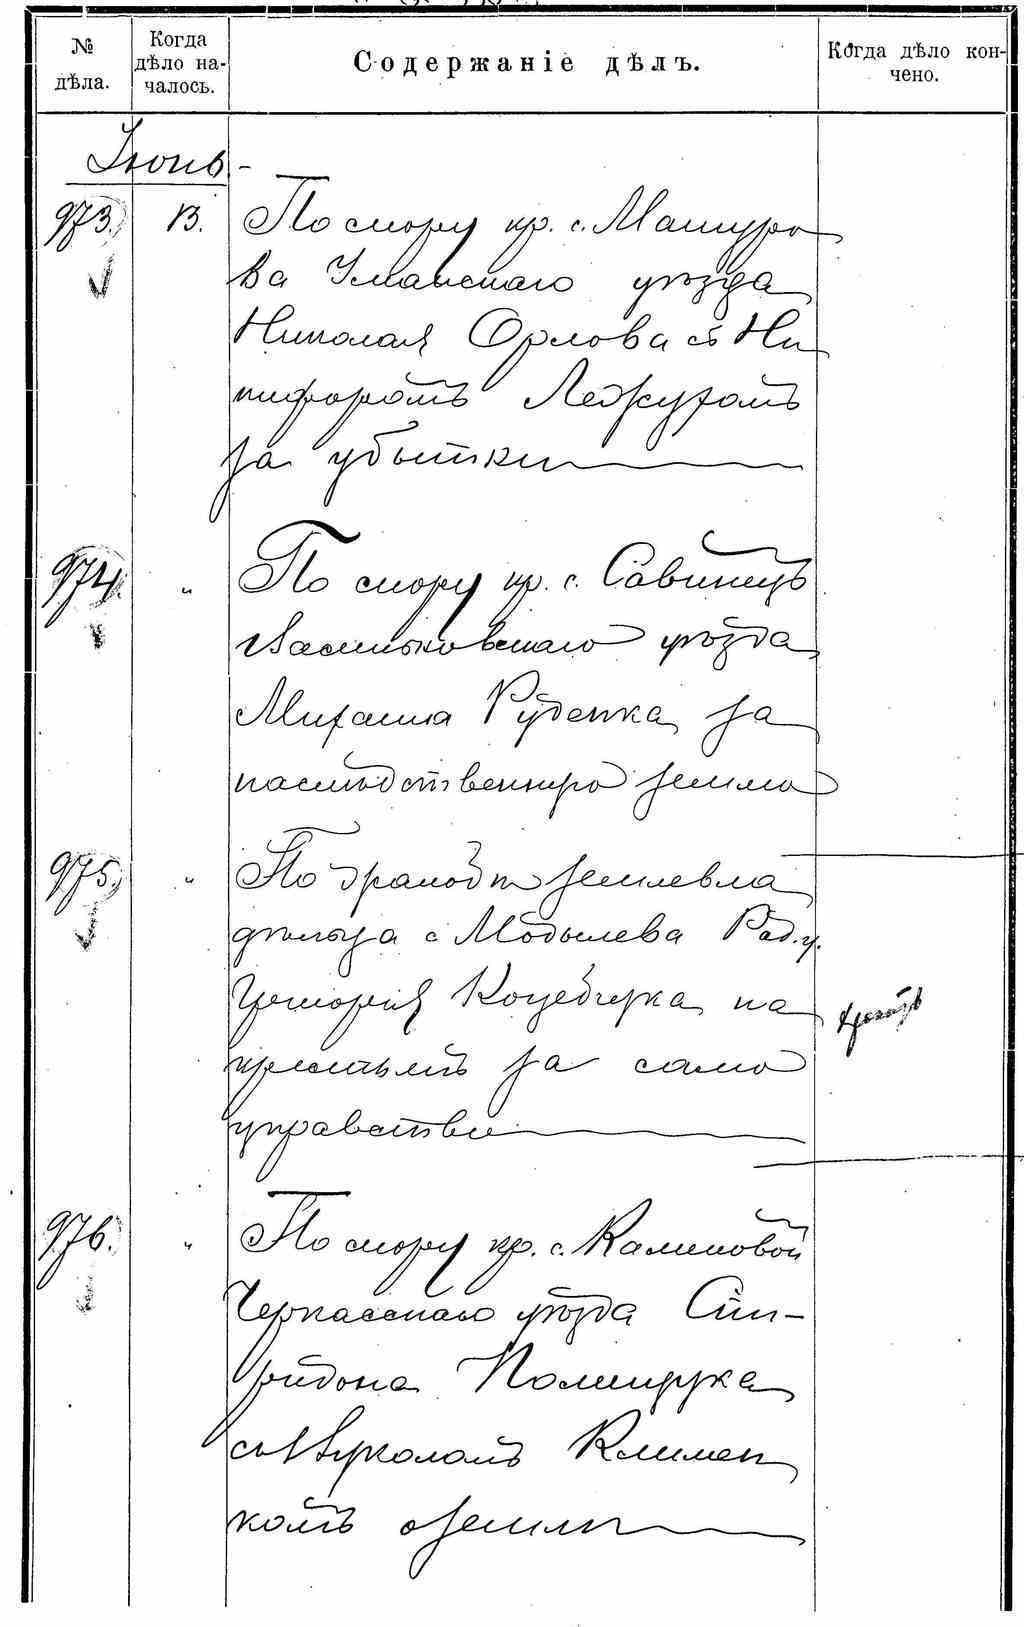 № дѣла.
Когда дѣло на-
чалось.
Содержаніе дѣлъ.
Когда дѣло кон-
чено.
Іюнь
973. 13. По спору кр. с. Машуро
ва Уманскаго уѣзда
Николая Орлова съ Ни
кифоромъ
за убытки
974. „ По спору кр. с. Савинецъ
Васильковскаго уѣзда
Михаила Руденка за
наслѣдственную землю
975. „ По жалобѣ землевла
дѣльца с. Рад. у.
Григорія на
крестьянъ за само
управство
976. „ По спору кр. с. Калиновой
Черкасскаго уѣзда Спи-
ридона Полищука
съ Вуколомъ Климен
комъ о землѣ